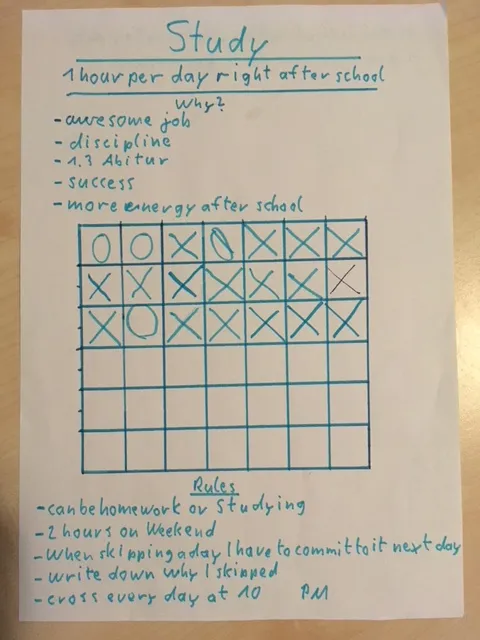 Study
1 hour per day right after school
Why?
- awesome job
- discipline
- 1.3 Abitur
- success
- more energy after school
O O X O X X X
X X X X X X X
X O X X X X X
Rules
- can be homework or studying
- 2 hours on Weekend
- When skipping a day I have to commit to it next day
- write down why I skipped
- cross every day at 10 PM